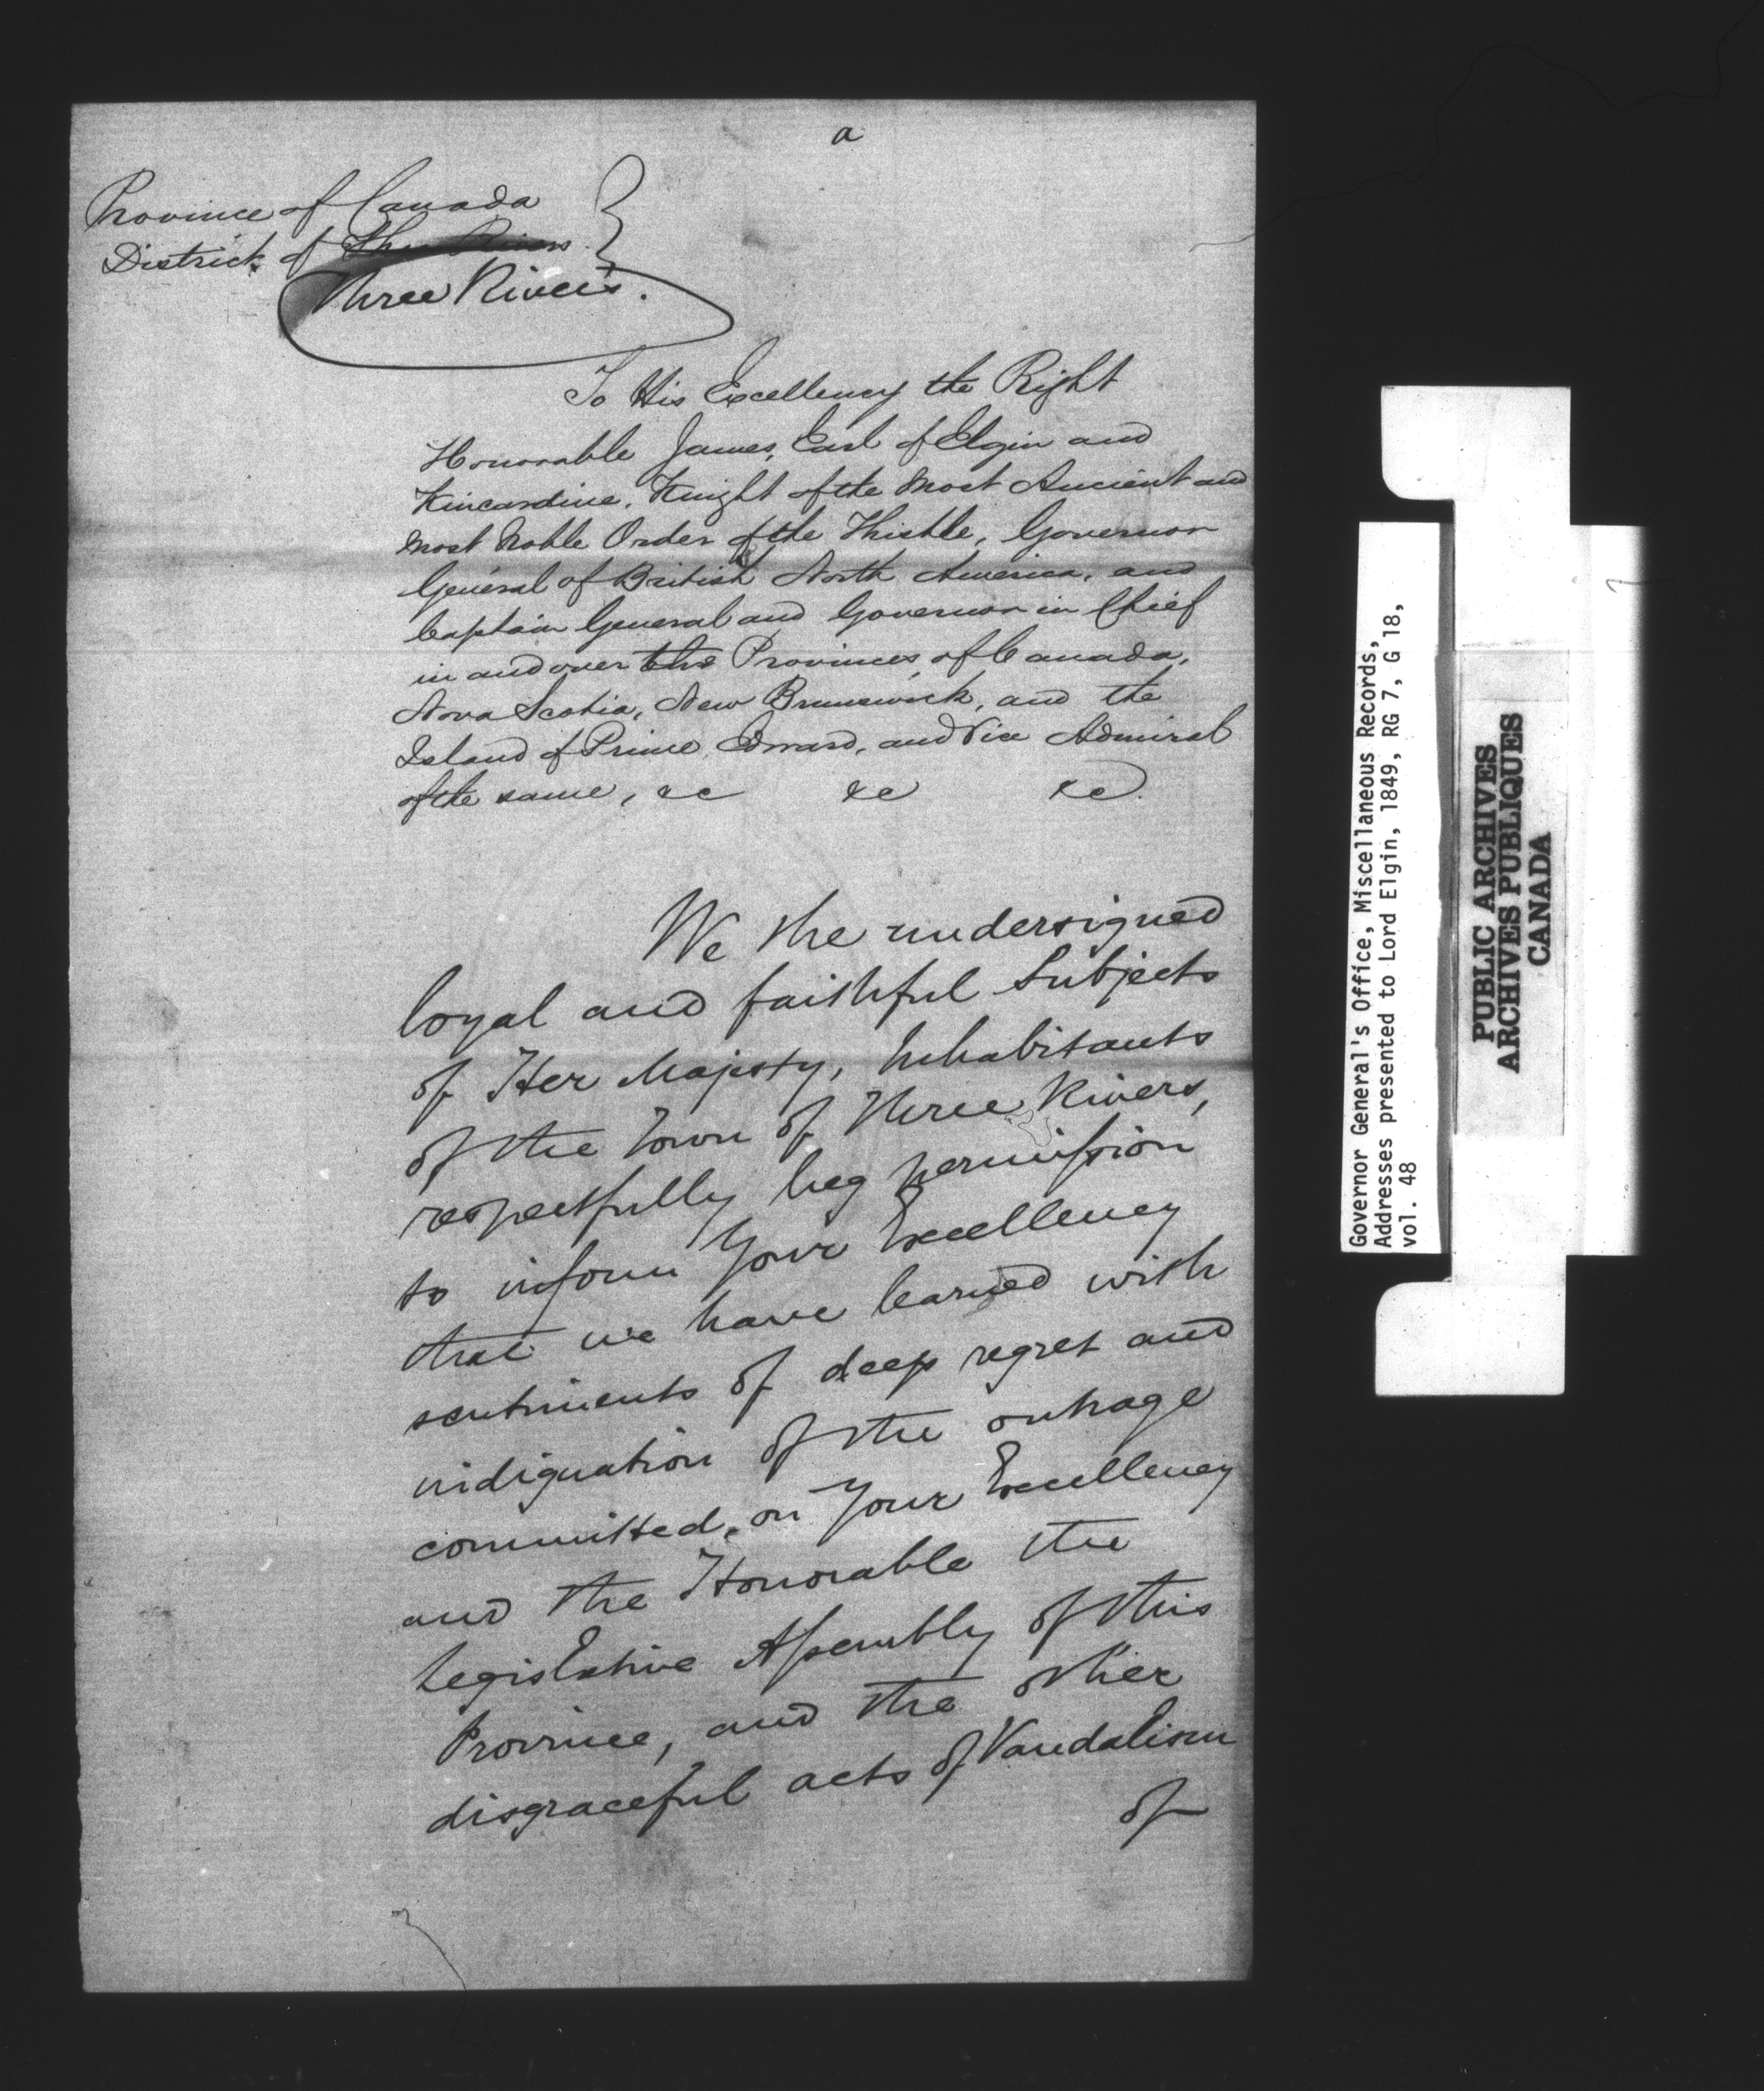 a
Province of Canada
District of Three Rivers
Three Rivers.
To His Excellency the Right
Honorable James, Earl of Elgin and
Kincardine, Knight of the Most Ancient and
Most Noble Order of the Thistle, Governor
General of British North America, and
Captain General and Governor in Chief
in and over the Provinces of Canada,
Nova Scotia, New Brunswick, and the
Island of Prince Edward, and Vice Admiral
of the same, &c &c &c.
We the undersigned
loyal and faithful Subjects
of Her Majesty, Inhabitants
of the Town of Three Rivers,
respectfully beg permission
to inform Your Excellency
that we have learned with
sentiments of deep regret and
indignation of the outrage
committed, on Your Excellency
and the Honorable the
Legislative Assembly of this
Province, and the other
disgraceful acts of Vandalism
of
Governor General's Office, Miscellaneous Records,
Addresses presented to Lord Elgin, 1849, RG 7, G 18,
vol. 48
PUBLIC ARCHIVES
ARCHIVES PUBLIQUES
CANADA